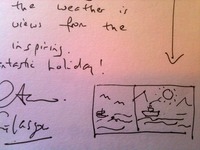 the weather is
views from the
inspiring.
fantastic holiday!